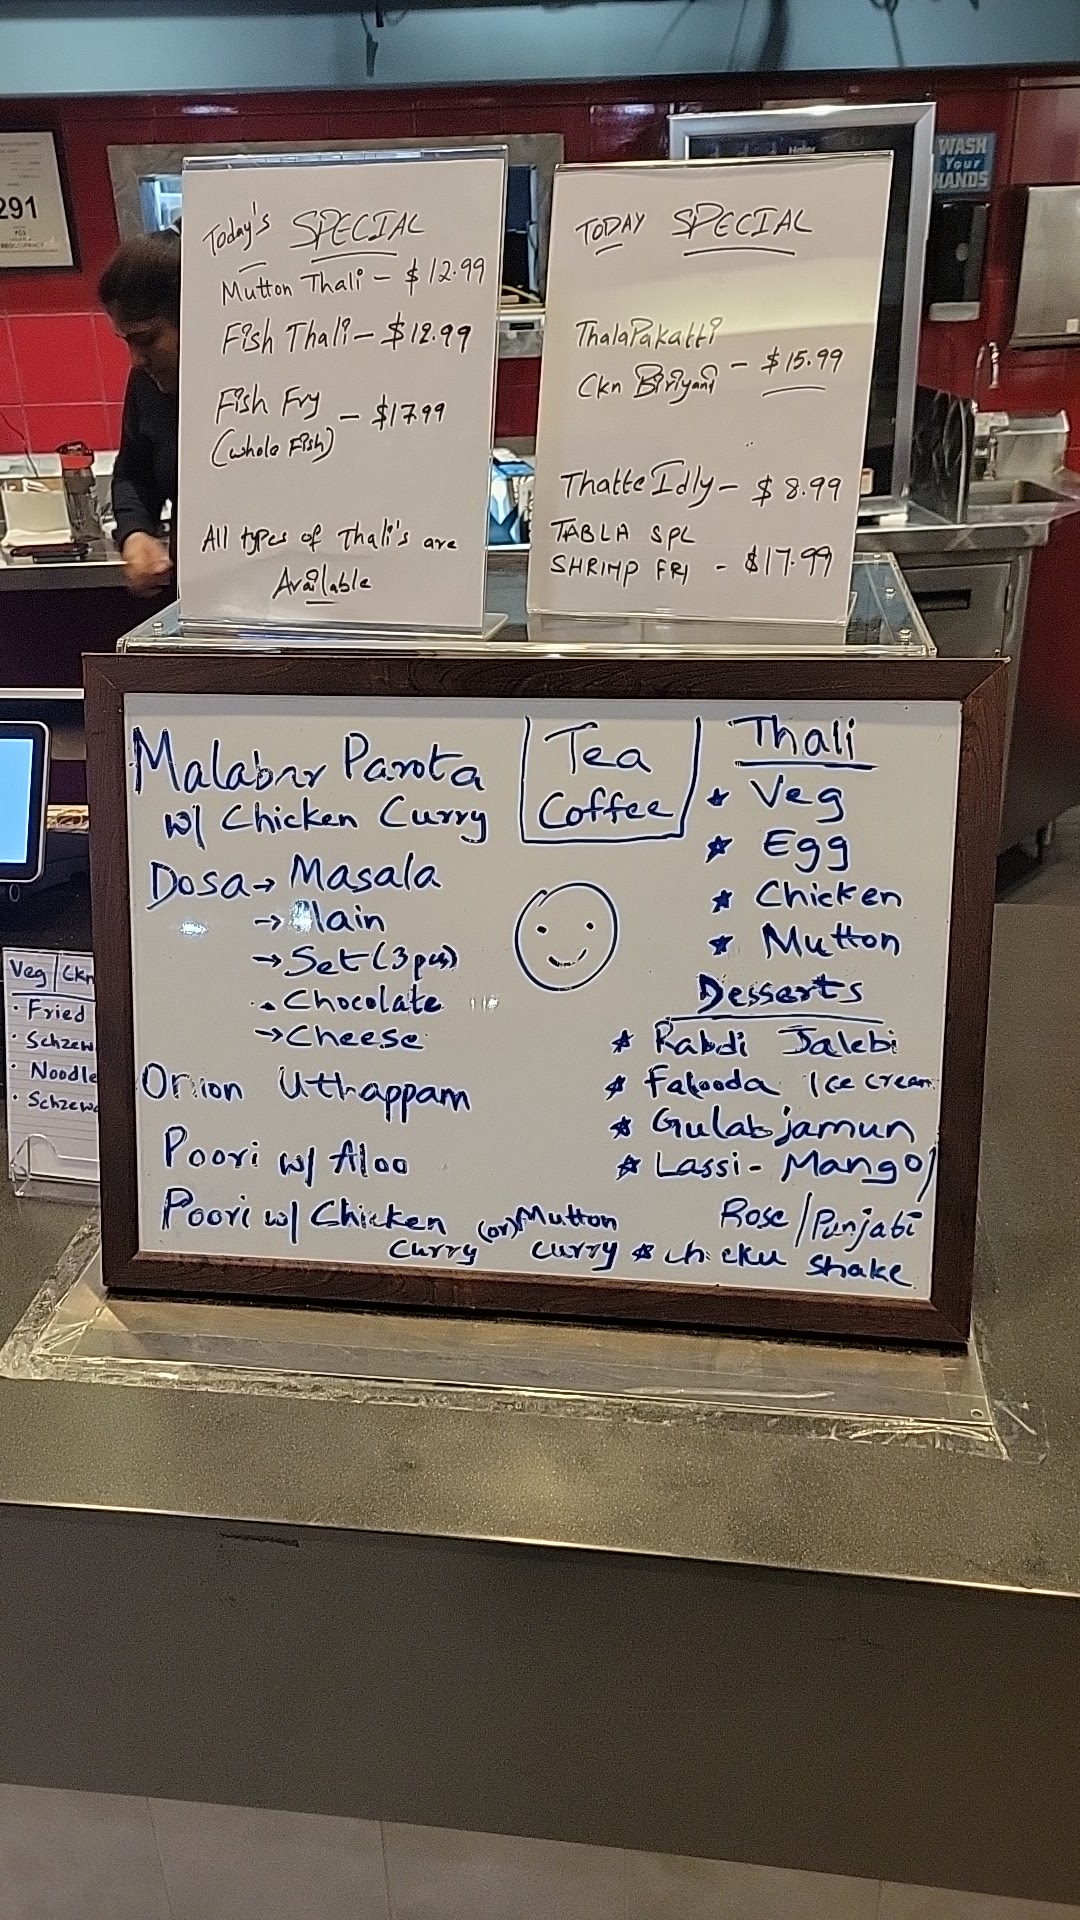 291
WASH
Your
HANDS
Today's SPECIAL
Mutton Thali - $12.99
Fish Thali - $12.99
Fish Fry
(whole Fish) - $17.99
All types of Thali's are
Available
TODAY SPECIAL
ThalaPakatti
Ckn Biriyani - $15.99
Thatte Idly - $8.99
TABLA SPL
SHRIMP FRI - $17.99
Malabar Parota
w/ Chicken Curry
Dosa → Masala
→ Plain
→ Set (3 pcs)
Chocolate
→ Cheese
Onion Uthappam
Poori w/ Aloo
Poori w/ Chicken Curry (or) Mutton curry
Tea
Coffee
Thali
★ Veg
★ Egg
★ Chicken
★ Mutton
Desserts
★ Rabdi Jalebi
★ Falooda Ice cream
★ Gulab jamun
★ Lassi - Mango/
Rose/Punjabi
★ Chicku Shake
Veg | Ckn
· Fried
· Schzew
· Noodle
· Schzew